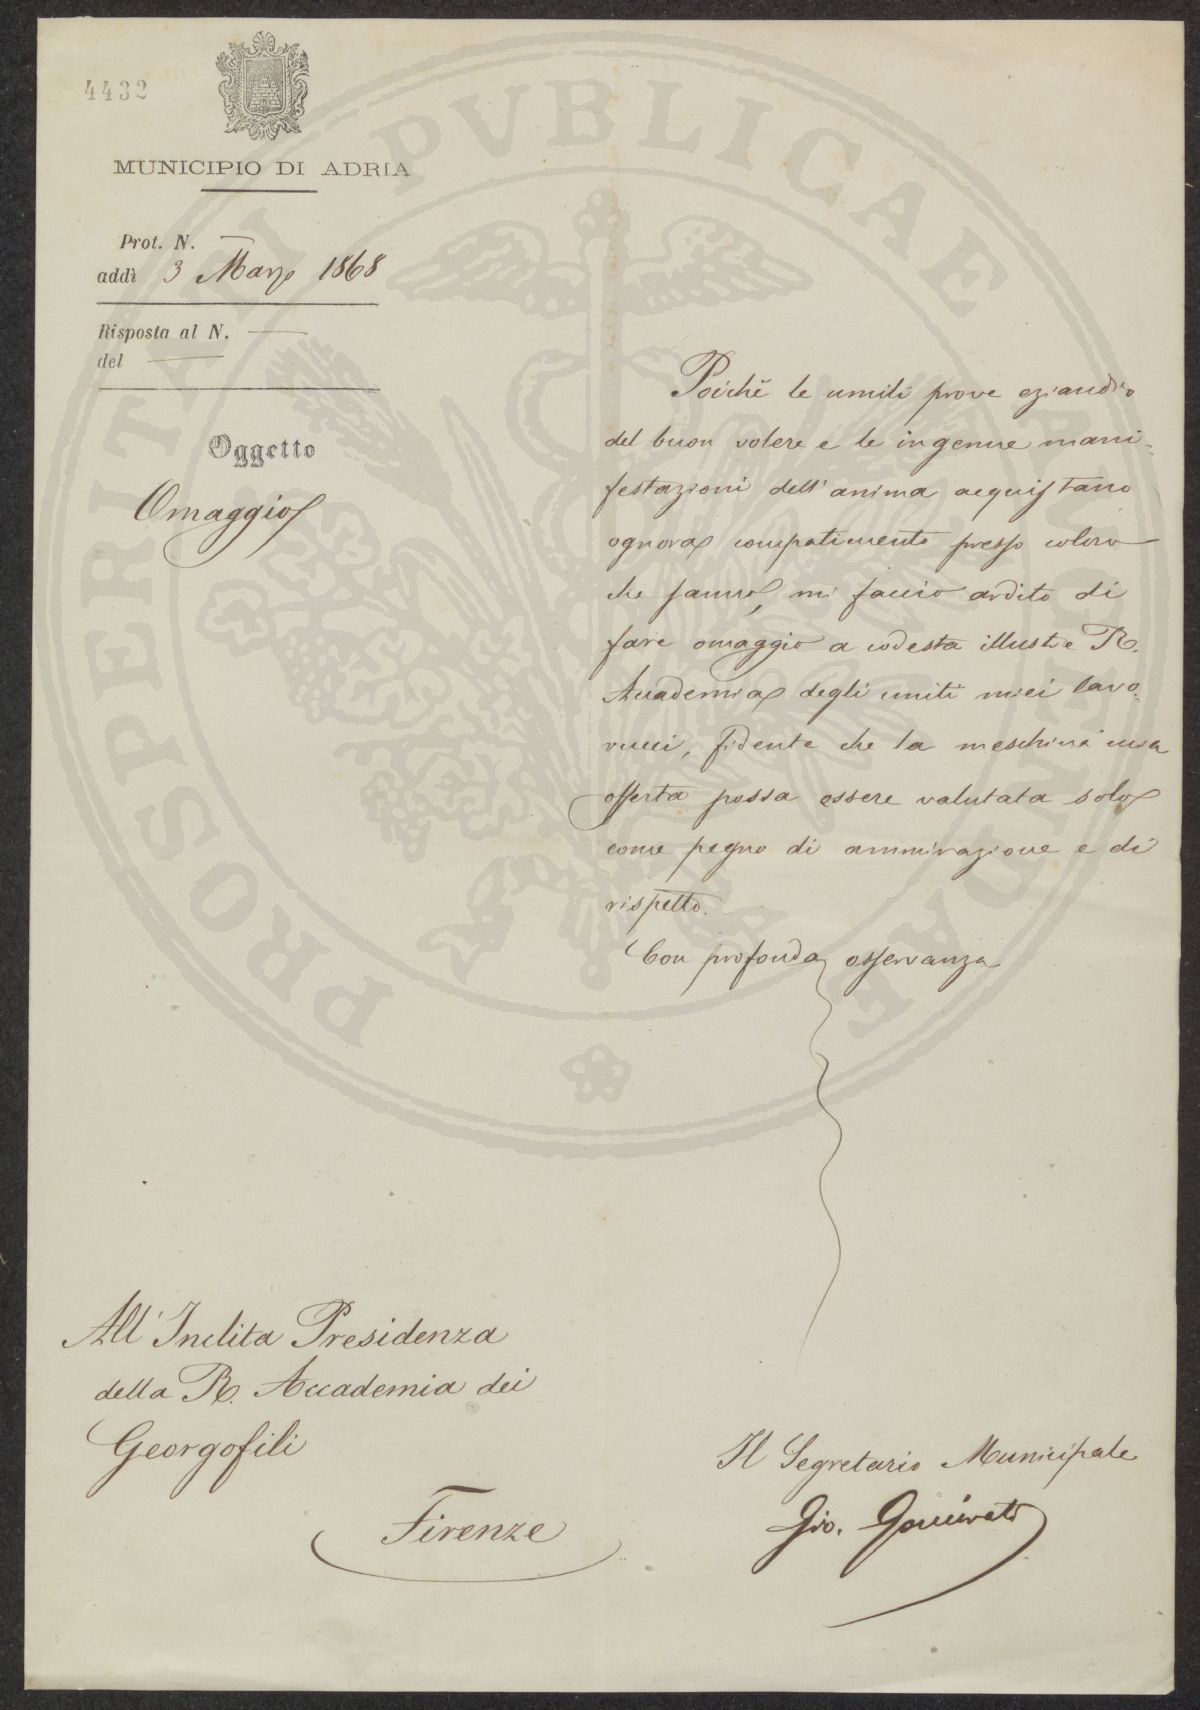 4432
MUNICIPIO DI ADRIA
Prot. N. —
addì 3 Marzo 1868
Risposta al N. —
del —
Oggetto
Omaggio
Poichè le umili prove eziandio
del buon volere e le ingenue mani-
festazioni dell'anima acquistano
ognora compatimento presso coloro
che sanno, mi faccio ardito di
fare omaggio a codesta illustre R.
Accademia degli uniti miei lavo-
rucci, fidente che la meschina mia
offerta possa essere valutata solo
come pegno di ammirazione e di
rispetto.
Con profonda osservanza
All'Inclita Presidenza
della R. Accademia dei
Georgofili
Firenze
Il Segretario Municipale
Gio.
PROSPERITATI PVBLICAE AVGENDAE